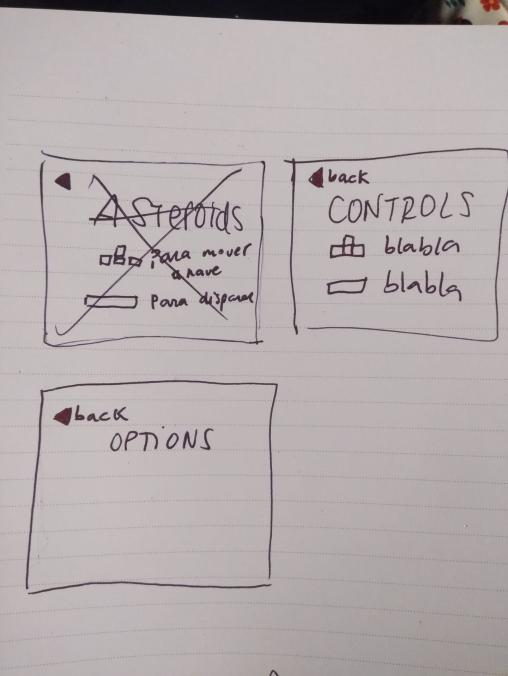 Asteroids
Para mover
a nave
Para disparar
back
CONTROLS
blabla
blabla
back
OPTIONS